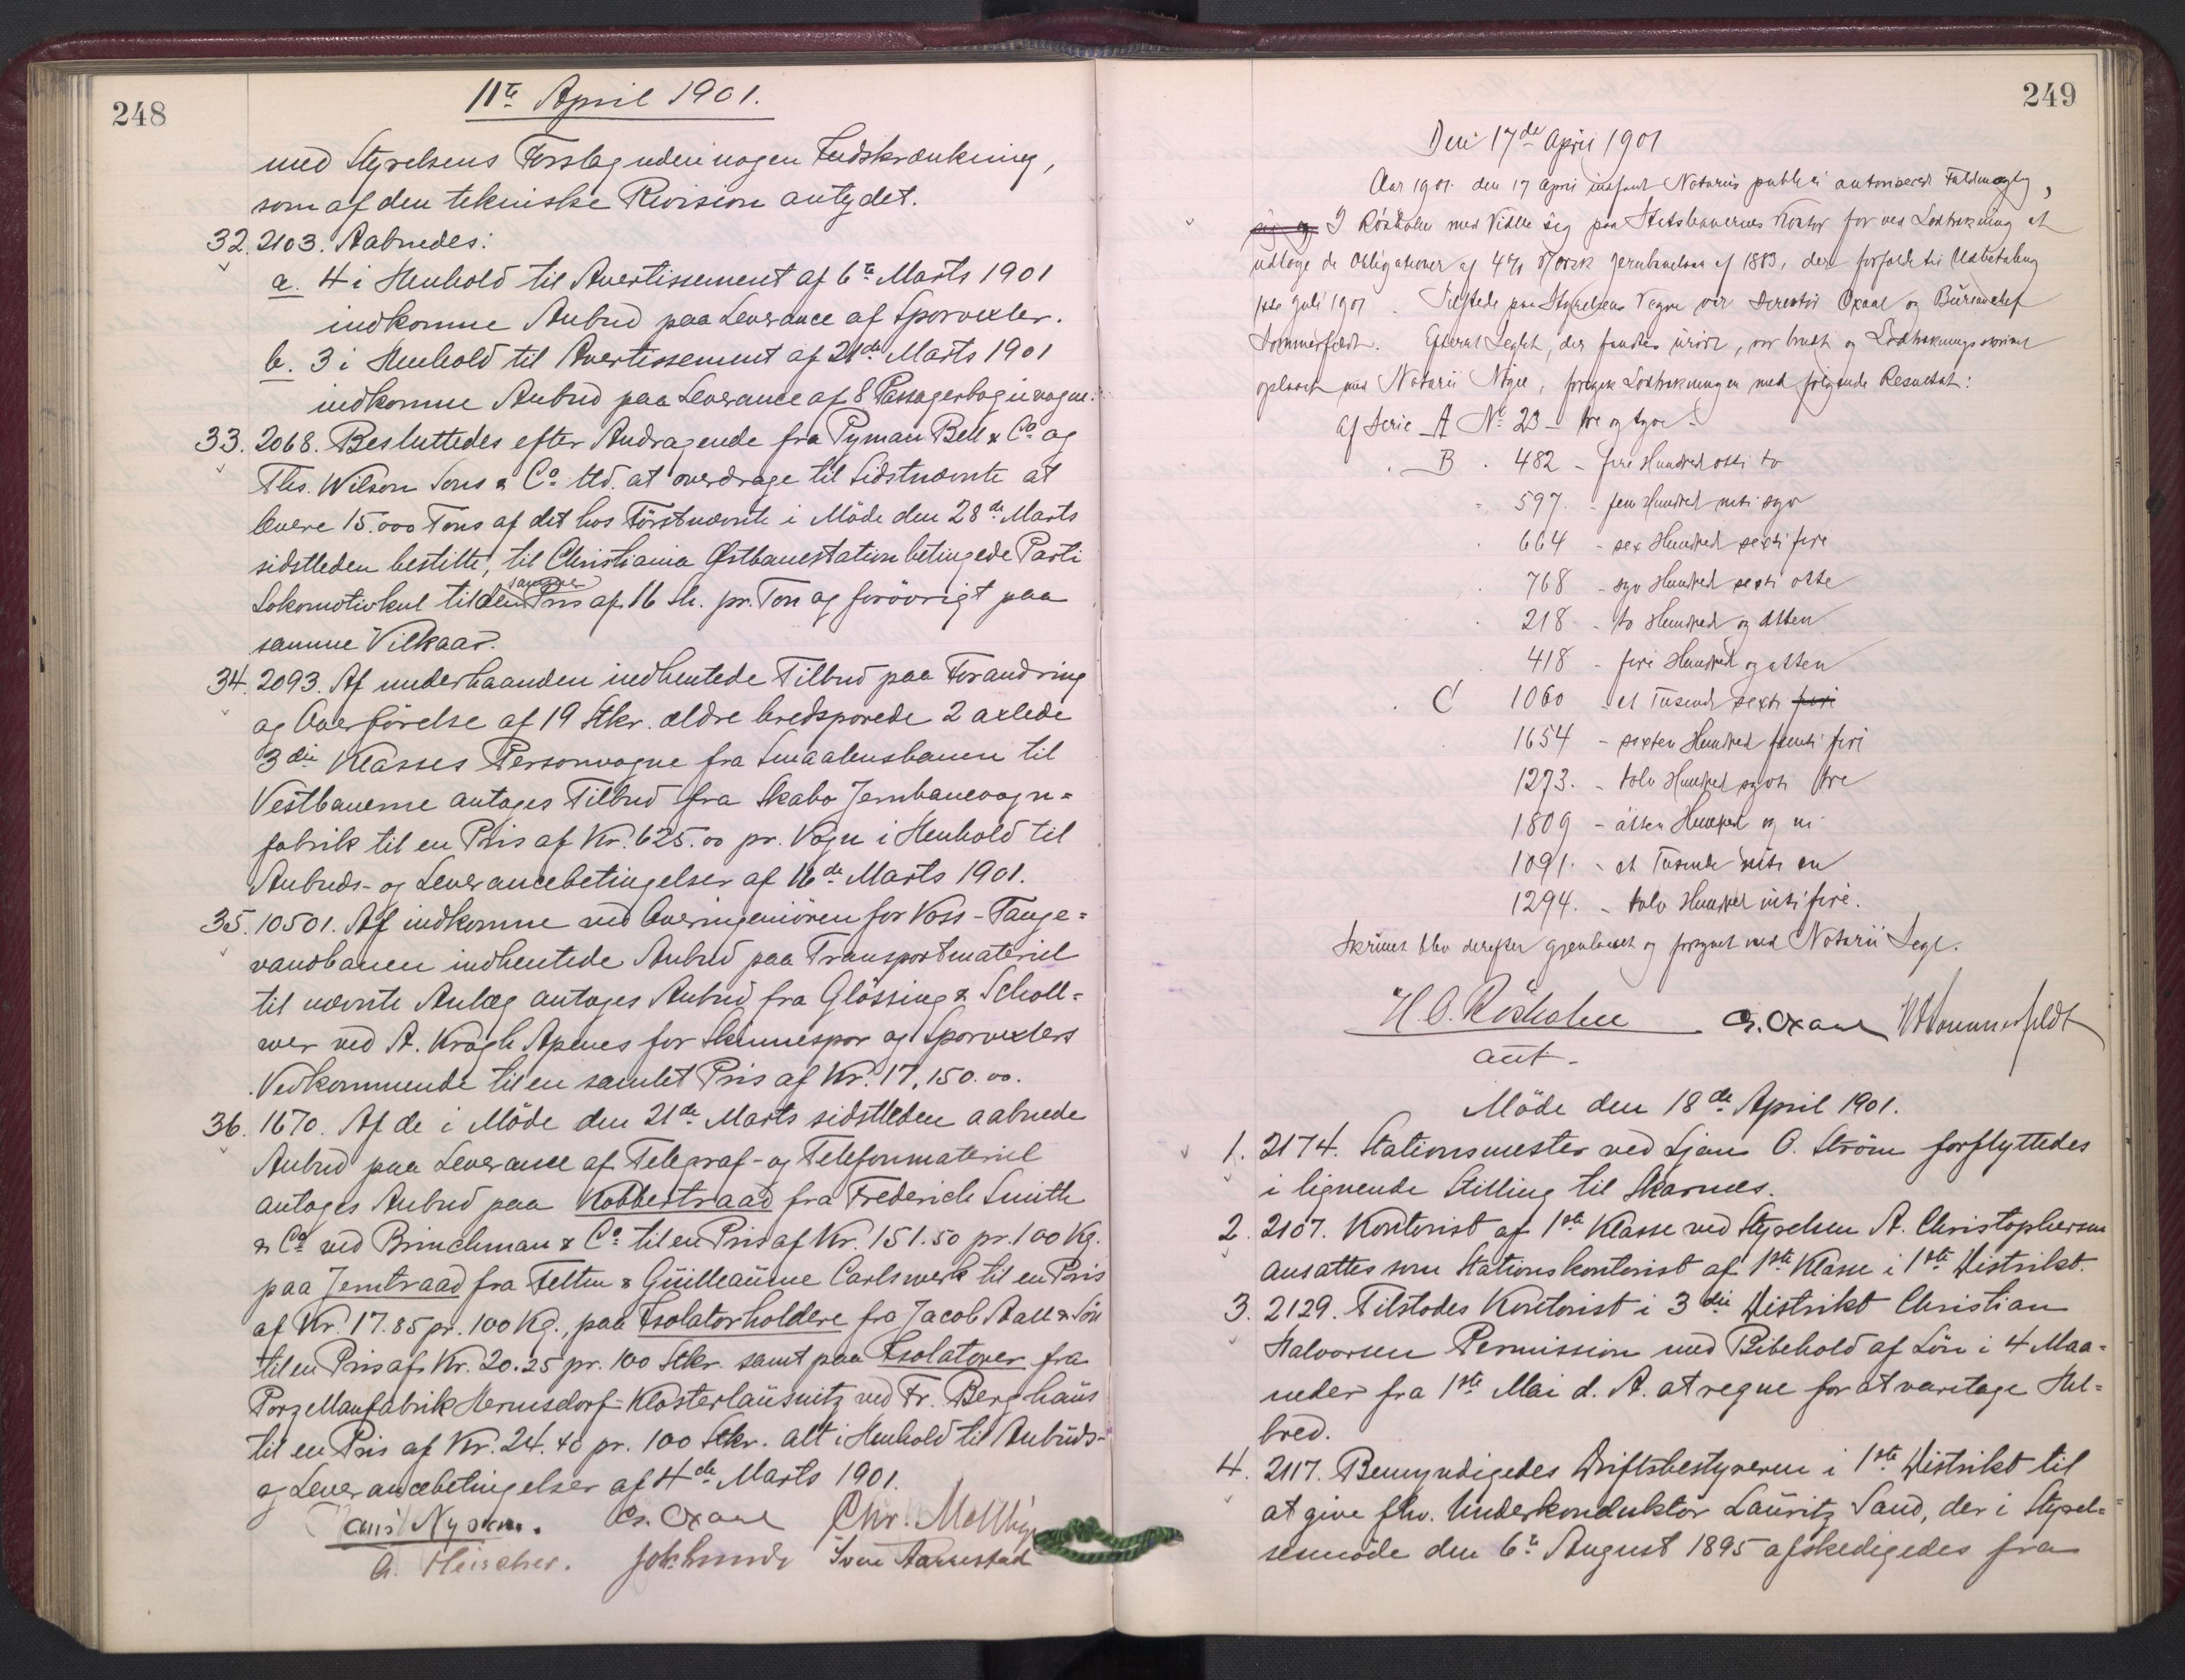 248
11te April 1901.
med Styrelsens Forslag uden nogen Indskrænkning,
som af den tekniske Revision antydet.
32. 2103. Aabnedes:
a. 4 i Henhold til Avertissement af 6te Marts 1901
indkomne Anbud paa Leverance af Sporvexler.
b. 3 i Henhold til Avertissement af 21de Marts 1901
indkomne Anbud paa Leverance af 8 Passagerbogievogne.
33. 2068. Besluttedes efter Andragende fra Pyman Bell & Co og
Ths. Wilson Sons & Co Ltd. at overdrage til Sidstnævnte at
levere 15.000 Tons af det hos Förstnævnte i Möde den 28de Marts
sidstleden bestilte, til Christiania Østbanestation betingede Parti
Lokomotivkul til den samme Pris af 16 sh. pr. Ton og forövrigt paa
samme Vilkaar.
34. 2093. Af underhaanden indhentede Tilbud paa Forandring
og Overförelse af 19 Stkr. ældre bredsporede 2 axlede
3die Klasses Personvogne fra Smaalensbanen til
Vestbanerne antages Tilbud fra Skabo Jernbanevogn=
fabrik til en Pris af Kr. 625.00 pr. Vogn i Henhold til
Anbuds- og Leverancebetingelser af 16de Marts 1901.
35. 10501. Af indkomne ved Overingeniören for Voss-Tauge=
vandbanen indhentede Anbud paa Transportmateriel
til nævnte Anlæg antages Anbud fra Glössing & Scholl=
wer ved A. Kragh Apenes for Skinnespor og Sporvexlers
Vedkommende til en samlet Pris af Kr. 17,150.00.
36. 1670. Af de i Möde den 21de Marts sidstleden aabnede
Anbud paa Leverance af Telegraf- og Telefonmateriel
antages Anbud paa Kobbertraad fra Frederick Smith
& Co ved Brinchman & Co til en Pris af Kr. 151.50 pr. 100 Kg.
paa Jerntraad fra Felten & Guilleaume Carlswerk til en Pris
af Kr. 17.85 pr. 100 Kg., paa Isolatorholdere fra Jacob Aall & Sön
til en Pris af Kr. 20.25 pr. 100 Stkr. samt paa Isolatorer fra
Porzellanfabrik Hermsdorf-Klosterlausnitz ved Fr. Berghaus
til en Pris af Kr. 24.40 pr. 100 Stkr. alt i Henhold til Anbuds-
og Leverancebetingelser af 4de Marts 1901.
Hans Nysom. Cs. Oxaal Chr.
Joh. Lunde Sven Aarrestad
249
Den 17de April 1901
Aar 1901 den 17 April indfandt Notarius publici autoriserede Fuldmægtig,
J Röxholm med Vidne sig paa Statsbanernes Kontor for ved Lodtrækning at
udtage de Obligationer af 4% Jernbanelaan af 1883, der forfalde til Udbetaling
1ste Juli 1901. Tilstede paa Styrelsens Vegne var Direktör Oxaal og Bureauchef
Sommerfeldt. Efterat Seglet, der fandtes urört, var brudt og Lodtrækningsskrinet
oplaast med Notarii Nögle, foregik Lodtrækningen med fölgende Resultat:
Af Serie A No 23 - tre og tyve.
B. 482 - fire Hundred otti to
597. - fem Hundred nitti syv
664 - sex Hundred sexti fire
768 - syv Hundred sexti otte
218 - to Hundred og atten
418 - fire Hundred og atten
C 1060 - et Tusend sexti fire
1654 - sexten Hundred femti fire
1273. - tolv Hundred sytti tre
1809 - atten Hundred og ni
1091. - et Tusende nitti en
1294. - tolv Hundred nitti fire.
Skrinet blev derefter gjenlaaset og forsynet med Notarii Segl.
H. O. Röxholm Cs. Oxaal Sommerfeldt
aut.
Möde den 18de April 1901.
1. 2174. Stationsmester ved Ljan O. Ström forflyttedes
i lignende Stilling til Skarnes.
2. 2107. Kontorist af 1ste Klasse ved Styrelsen A. Christophersen
ansattes som Stationskontorist af 1ste Klasse i 1ste Distrikt.
3. 2129. Tilstodes Kontorist i 3die Distrikt Christian
Halvorsen Permission med Bibehold af Lön i 4 Maa=
neder fra 1ste Mai d. A. at regne for at varetage Hel=
bred.
4. 2117. Bemyndigedes Driftsbestyreren i 1ste Distrikt til
at give fhv. Underkonduktör Lauritz Sand, der i Styrel=
sesmöde den 6te August 1895 afskedigedes fra